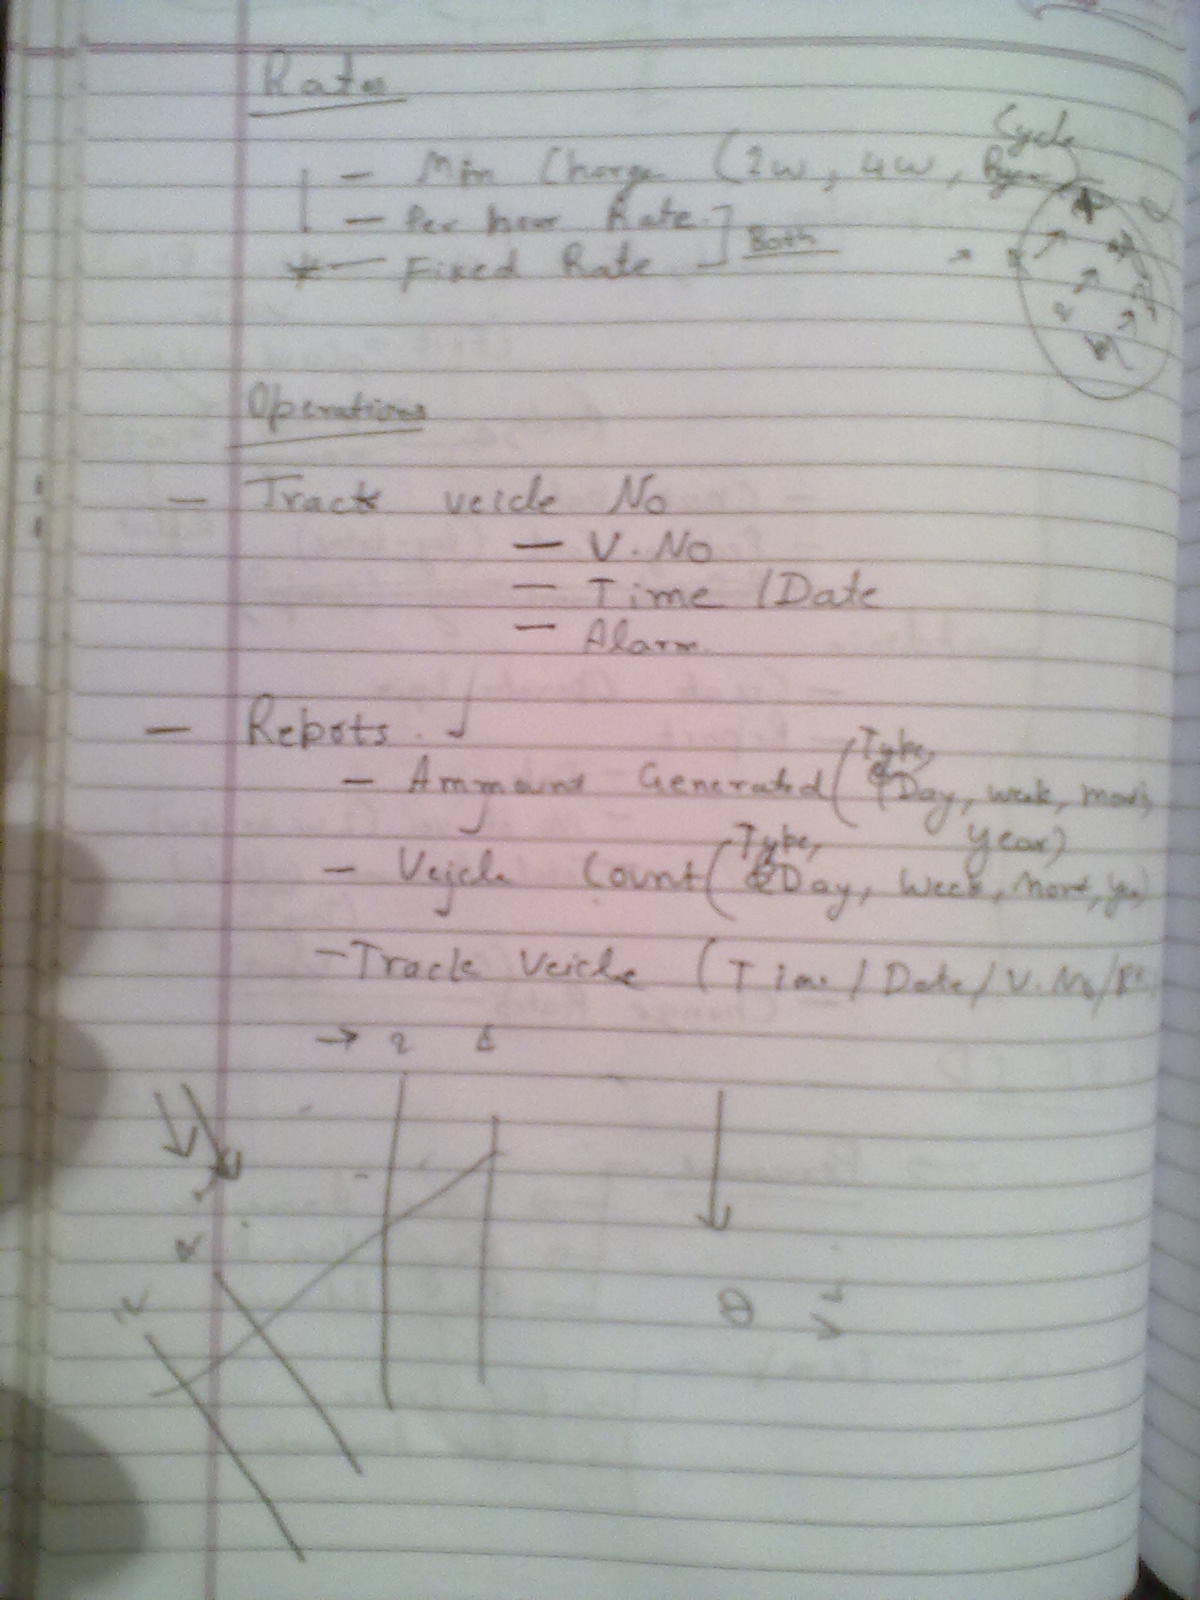 Rates
- Min Charge (2w, 4w,
Cycle
- Per hour Rate.
] Both
* - Fixed Rate
Operations
- Track veicle No
- V. No
- Time / Date
- Alarm
- Repots.
- Ammount Generated (Type, Day, week, month,
year)
- Veicle Count (Type, Day, Week, Mont, year)
- Track Veicle (Time / Date / V. No /
→ 2